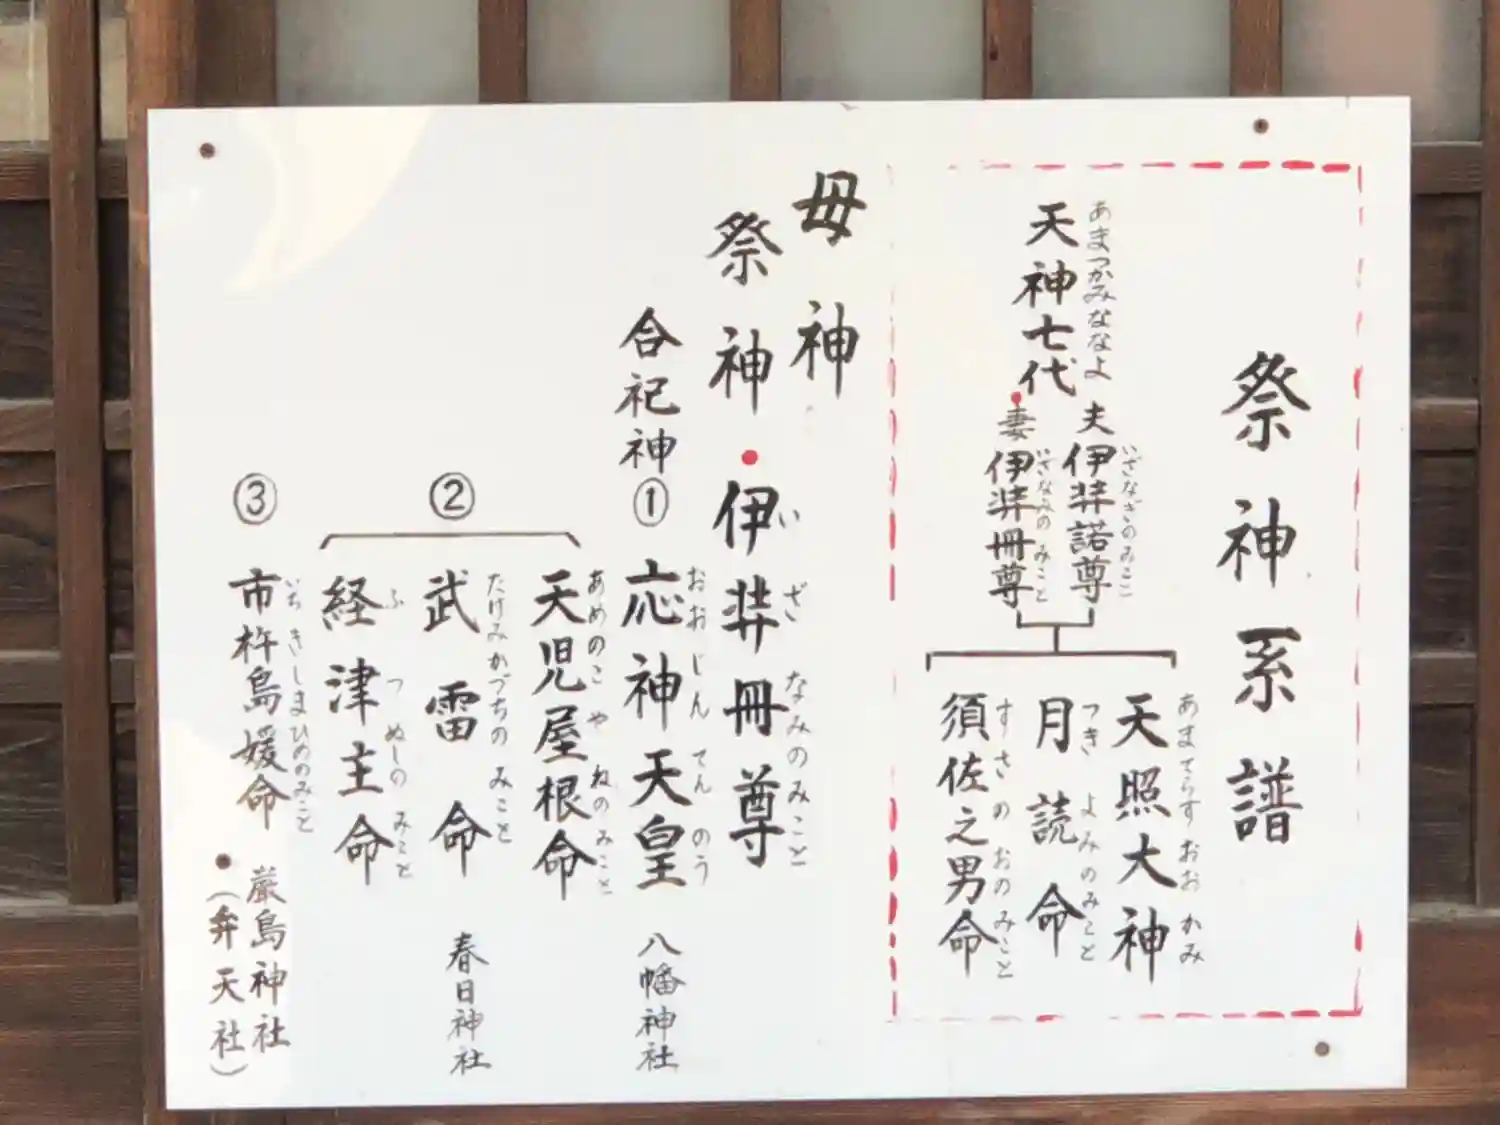 祭神系譜
あまつかみななよ
天神七代
夫 伊弉諾尊
いざなぎのみこと
妻 伊弉冊尊
いざなみのみこと
天照大神
あまてらすおおかみ
月読命
つきよみのみこと
須佐之男命
すさのおのみこと
母神
祭神・伊弉冊尊
いざなみのみこと
合祀神
① 応神天皇 八幡神社
おおじんてんのう
②
天児屋根命
あめのこやねのみこと
武雷命 春日神社
たけみかづちのみこと
経津主命
ふつぬしのみこと
③ 市杵島媛命
いちきしまひめのみこと
・厳島神社
(弁天社)